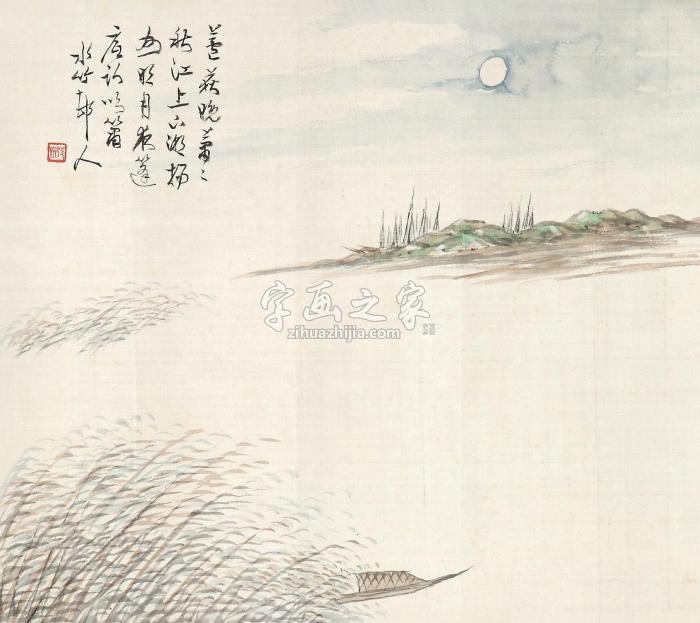 蘆荻晚蕭〻
秋江上下潮
明月夜蓬
底
水竹邨人
字画之家
zihuazhijia.com